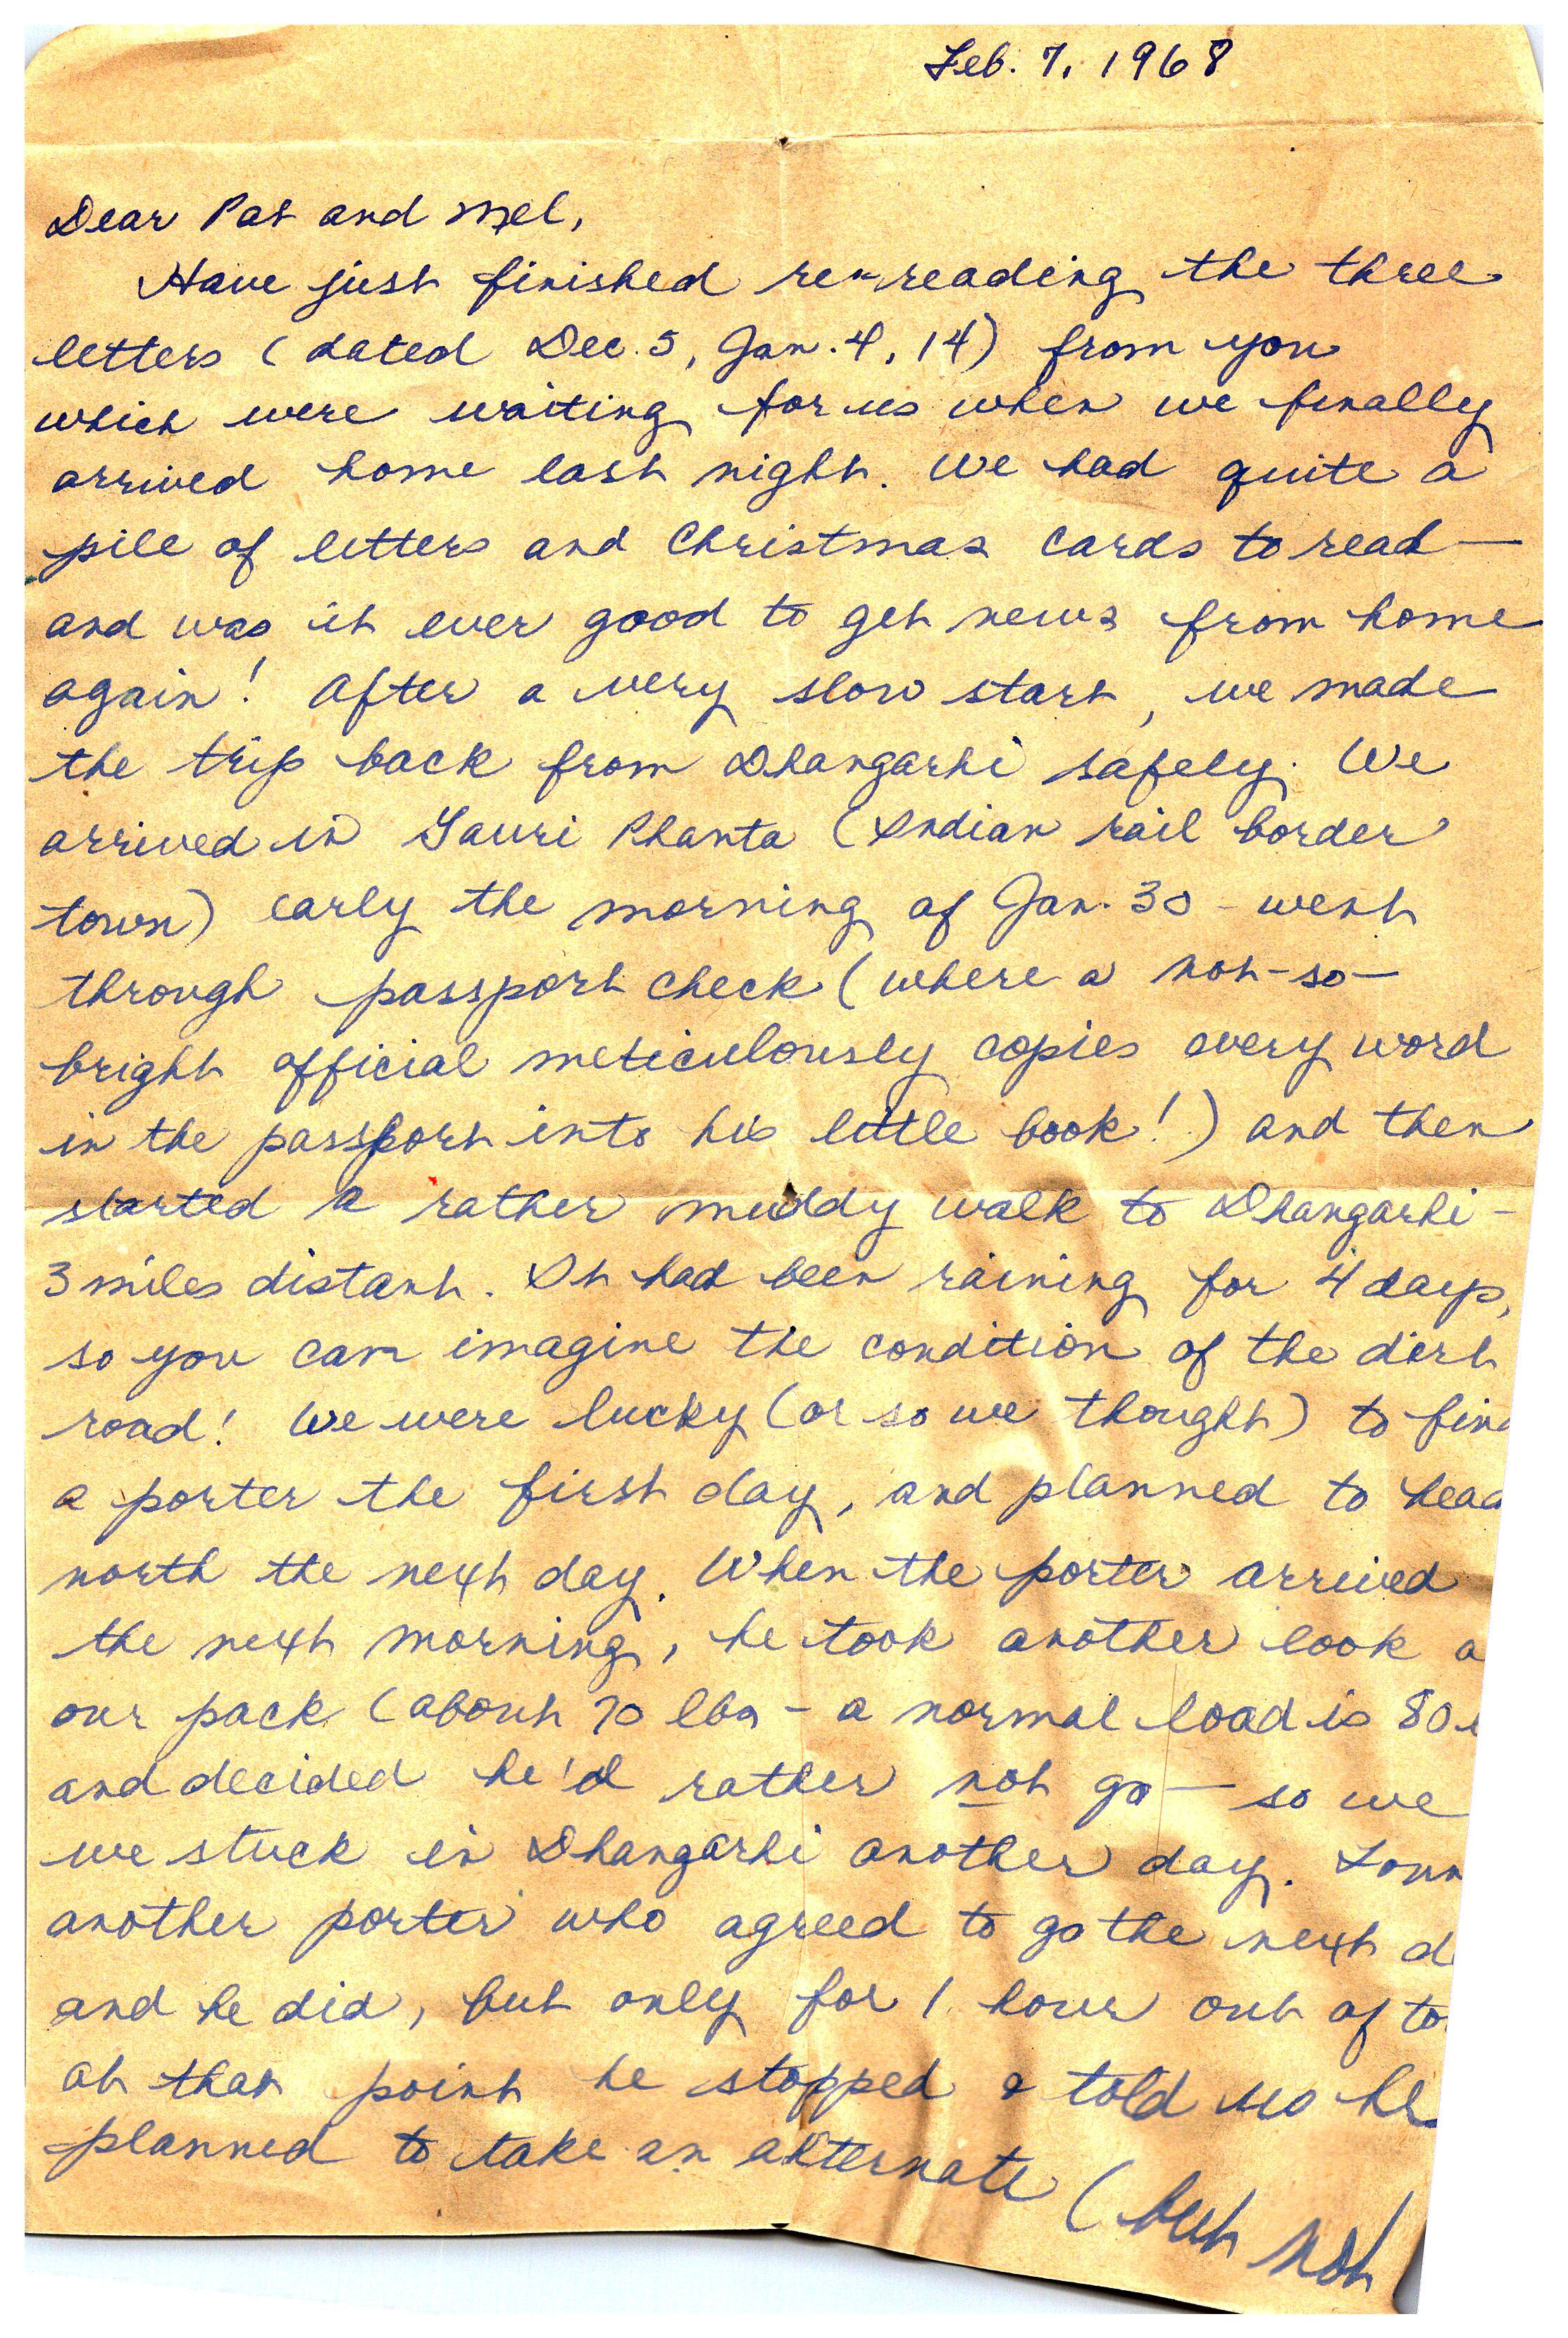 Feb. 7, 1968
Dear Pat and Mel,
Have just finished re-reading the three
letters (dated Dec. 5, Jan. 4, 14) from you
which were waiting for us when we finally
arrived home last night. We had quite a
pile of letters and Christmas cards to read—
and was it ever good to get news from home
again! After a very slow start, we made
the trip back from Dhangarhi safely. We
arrived in Gauri Phanta (Indian rail border
town) early the morning of Jan. 30 - went
through passport check (where a not-so-
bright official meticulously copies every word
in the passport into his little book!) and then
started a rather muddy walk to Dhangarhi -
3 miles distant. It had been raining for 4 days,
so you can imagine the condition of the dirt
road! We were lucky (or so we thought) to find
a porter the first day, and planned to head
north the next day. When the porter arrived
the next morning, he took another look a
our pack (about 70 lbs - a normal load is 80
and decided he'd rather not go — so we
we stuck in Dhangarhi another day. Foun
another porter who agreed to go the next d
and he did, but only for 1 hour out of to
at that point he stopped & told us he
planned to take an alternate (but not